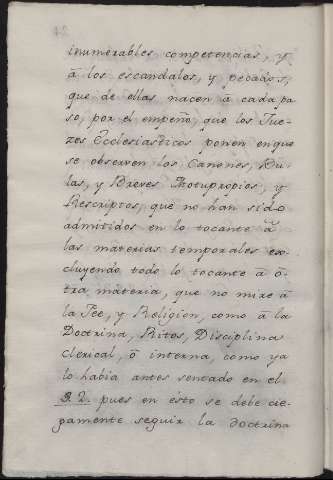 inumerables competencias, y
â los escandalos, y pecados,
que de ellas nacen â cada pa
so, por el empeño, que los Jue-
zes Ecclesiasticos ponen en que
se observen los Canones, Bu-
las, y Breves Motupropios, y
Rescriptos, que no han sido
admitidos en lo tocante â
las materias temporales ex-
cluyendo todo lo tocante â ô-
tra materia, que no mire â
la Fee, y Religion, como â la
Doctrina, Ritos, Disciplina
clerical, ô interna, como ya
lo habia antes sentado en el
§. 2. pues en esto se debe cie-
gamente seguir la doctrina